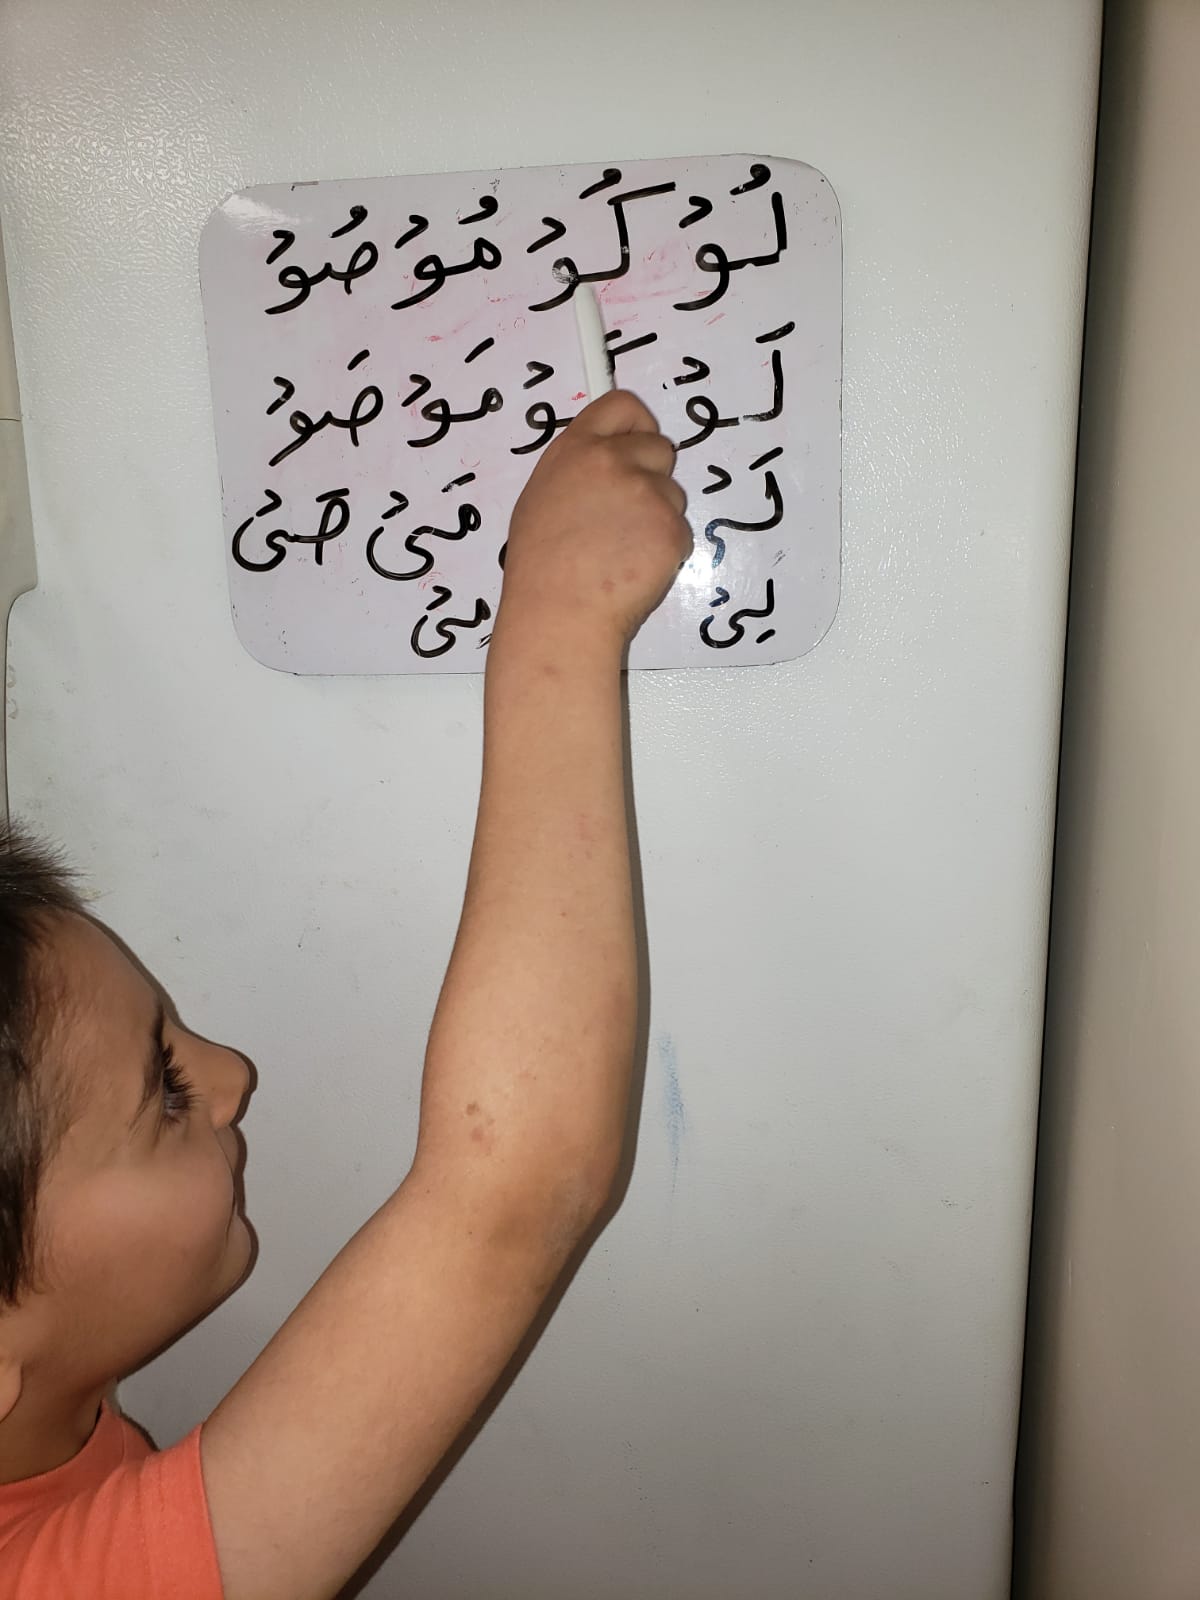 لُوْ كُوْ مُوْ صُوْ
لَوْ كَوْ مَوْ صَوْ
لَىْ مَىْ صَىْ
لِىْ مِىْ